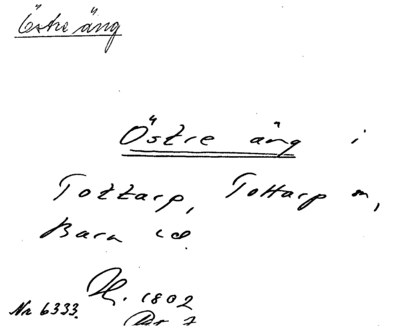 Östre äng
Östre äng i
Tottarp, Tottarp sn,
Bara hd.
1802
Nr 6333.